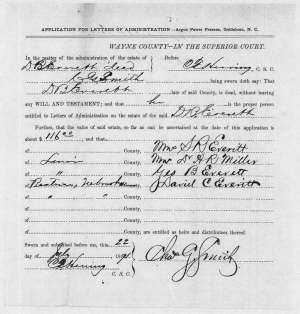 APPLICATION FOR LETTERS OF ADMINISTRATION—Argus Power Presses, Goldsboro, N. C.
WAYNE COUNTY—IN THE SUPERIOR COURT.
In the matter of the administration of the estate of Before
D B Everett decd C. S. C.
C G Smith being sworn doth say: That
D B Everett late of said County, is dead, without leaving
any WILL AND TESTAMENT; and that he is the proper person
entitled to Letters of Administration on the estate of the said D B Everett
Further, that the value of said estate, so far as can be ascertained at the date of this application is
about $ and that
of County, Mrs S R Everett
of Lenoir County, Mrs H R Miller
of " County, Geo B Everett
of County, David C Everett
of " County,
of County,
of County, are entitled as heirs and distributees thereof.
Sworn and subscribed before me, this 22
day of 189 Chas G Smith
C. S. C.